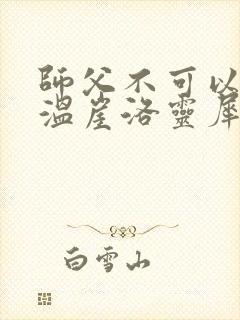 師父不可以
溫崖洛靈犀
白雪山